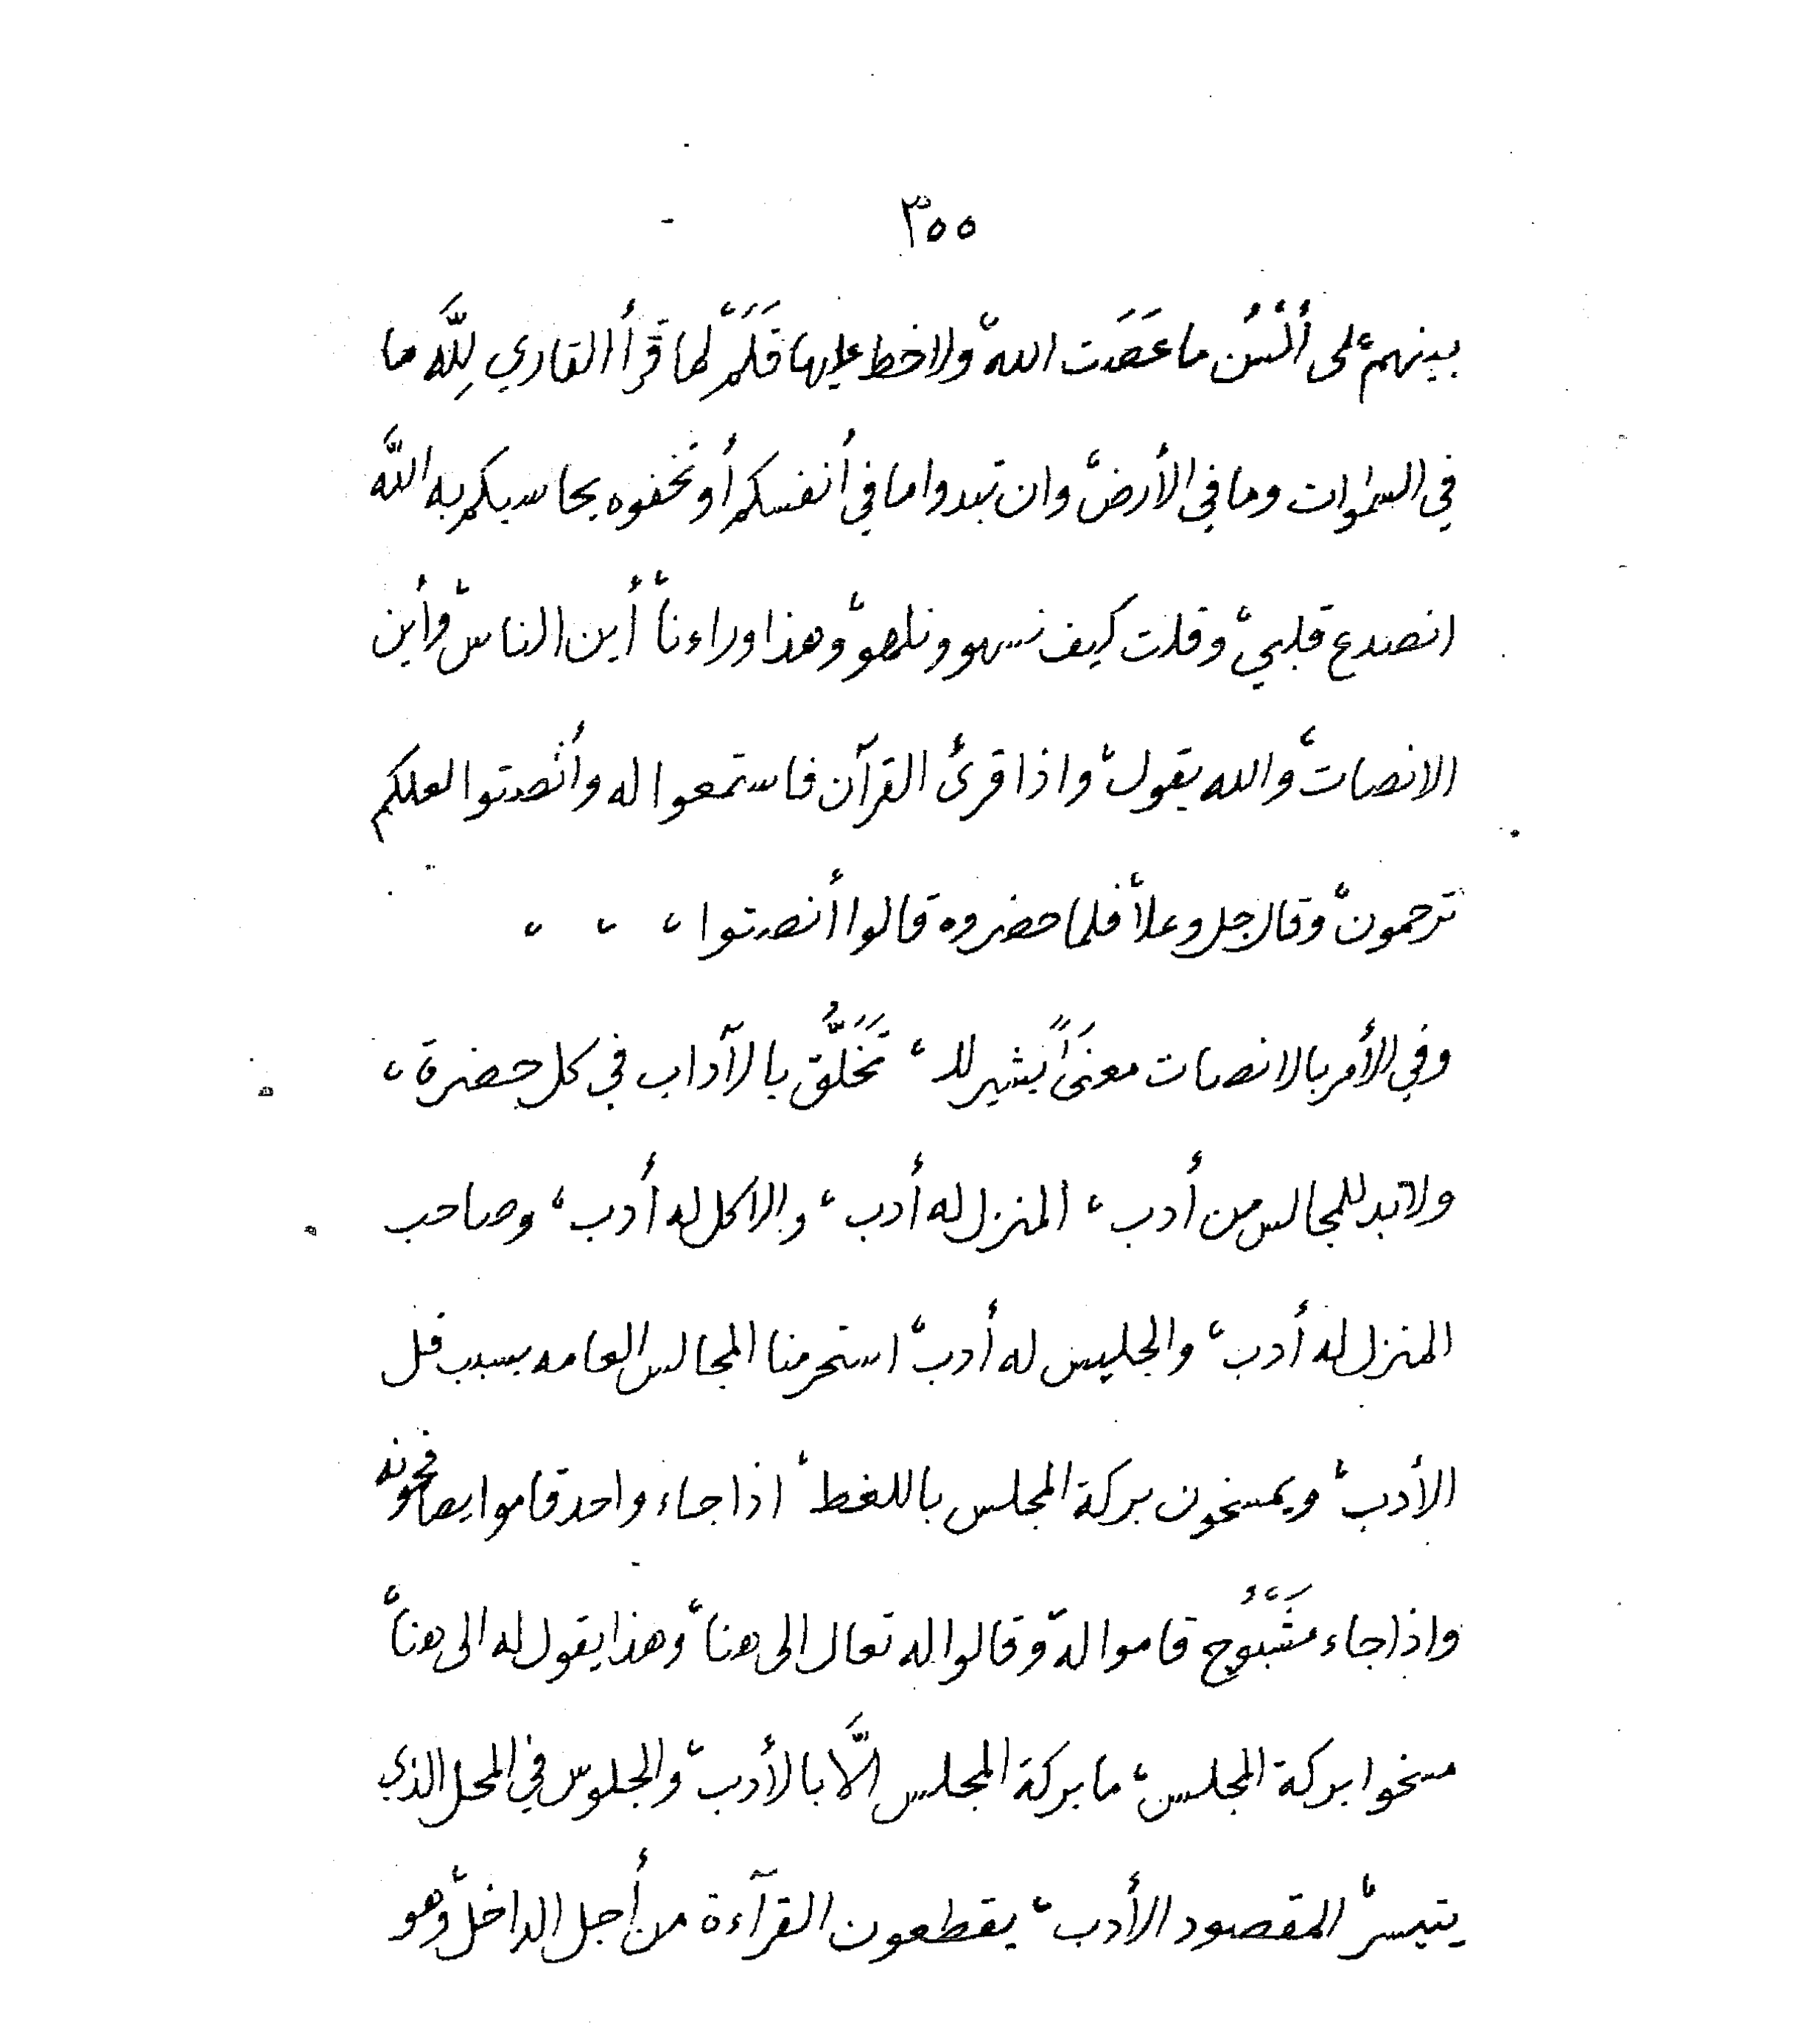 ٣٥٥
بينهم، لى ألْسُن ما عَصَت الله، ولا خط عليها قَلَمْ، لما قرأ القاري لِلَّه ما
في السموات وما في الأرض، وان تبدوا ما في أنفسكم أو تخفوه يحاسبكم به اللَّه
انصدع قلبي، وقلت كيف نسهو ونلهو، وهذا وراءنا، أين الناس، وأين
الانصات، والله يقول، واذا قرئ القرآن فاستمعوا له وأنصتوا لعلكم
ترحمون، وقال جل وعلا، فلما حضروه قالوا أنصتوا ، ، ،
وفي الأمر بالانصات معنىً يشير للـ، تَخَلُّق بالآداب في كل حضرة،
ولا بد للمجالس من أدب، المنزل له أدب، والاكل له أدب، وصاحب
المنزل له أدب، والجليس له أدب، استحرمنا المجالس العامه بسبب قل
الأدب، ويمسخون بركة المجلس باللغط، اذا جاء واحد قاموا يصافحونه
واذا جاء مَشْبُوح قاموا له، وقالوا له تعال الى هنا، وهذا يقول له الى هنا،
مسخوا بركة المجلس، ما بركة المجلس الَّا بالأدب، والجلوس في المحل الذي
يتيسر، المقصود الأدب، يقطعون القرآءة من أجل الداخل، وهو